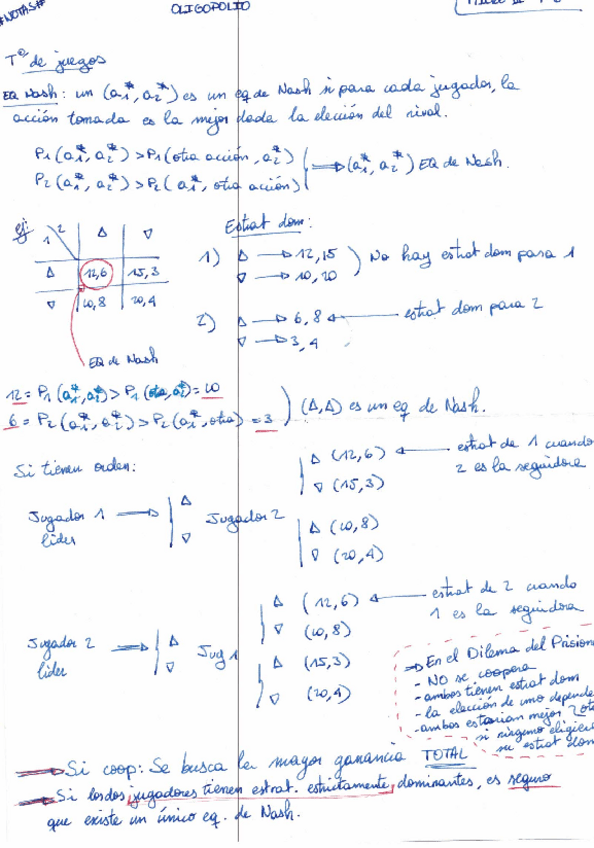 #NOTAS#
OLIGOPOLIO
Tª de juegos
EQ Nash: un (a1*, a2*) es un eq de Nash si para cada jugador, la
acción tomada es la mejor dada la elección del rival.
P1(a1*, a2*) > P1(otra acción, a2*)
P2(a1*, a2*) > P2(a1*, otra acción)
⟹ (a1*, a2*) EQ de Nash.
ej:
1 \ 2 △ ▽
△ 12,6 15,3
▽ 10,8 20,4
EQ de Nash
Estrat dom:
1) △ → 12,15
▽ → 10,20
No hay estrat dom para 1
2) △ → 6,8 ← estrat dom para 2
▽ → 3,4
12 = P1(a1*, a2*) > P1(otra, a2*) = 10
6 = P2(a1*, a2*) > P2(a1*, otra) = 3
(△,△) es un eq de Nash.
Si tienen orden:
Jugador 1 líder → △ ▽
Jugador 2
△ (12,6) ← estrat de 1 cuando
2 es la seguidora
▽ (15,3)
△ (10,8)
▽ (20,4)
Jugador 2 líder → △ ▽
Jug 1
△ (12,6) ← estrat de 2 cuando
1 es la seguidora
▽ (10,8)
△ (15,3)
▽ (20,4)
⇒ En el Dilema del Prision
- NO se coopera
- ambos tienen estrat dom
- la elección de uno depende
- ambos estarían mejor
si ninguno eligiera
su estrat dom
⇒ Si coop: Se busca la mayor ganancia TOTAL
⇒ Si los dos jugadores tienen estrat. estrictamente dominantes, es seguro
que existe un único eq. de Nash.